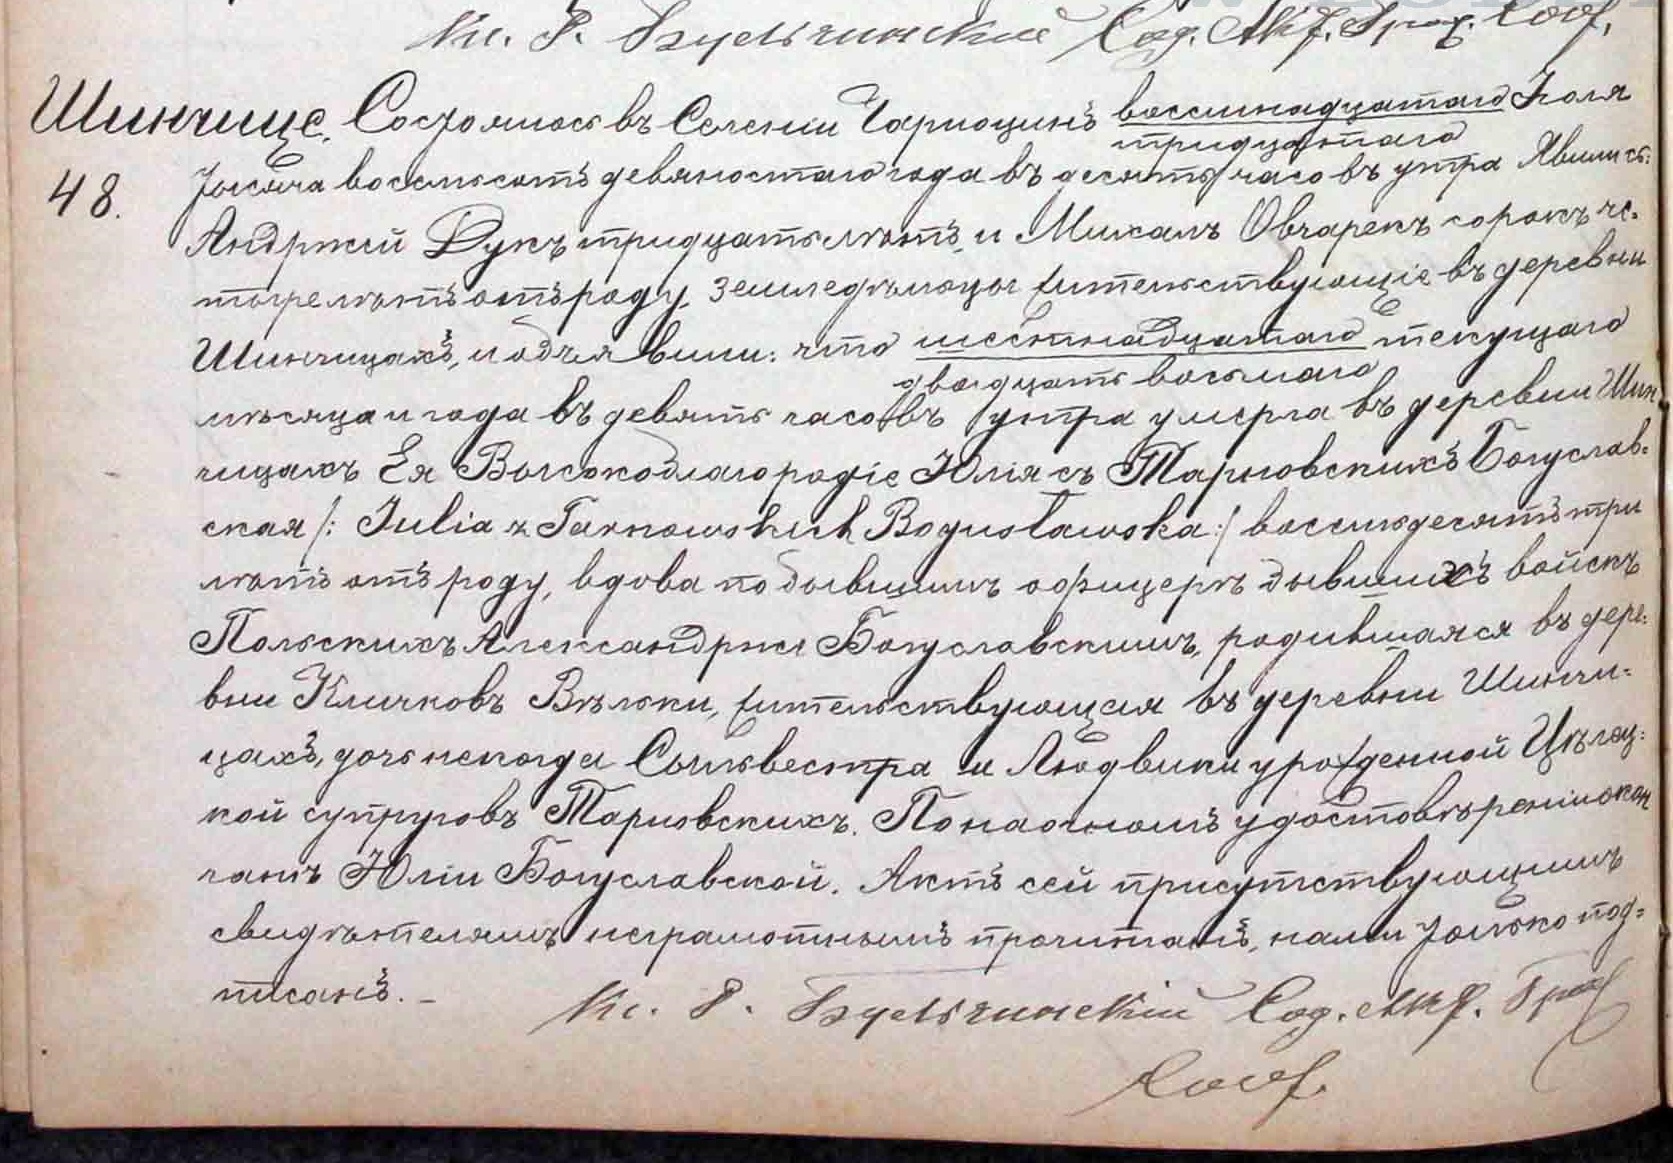 Кс. Р. Бульчинскій Сод. Акт. Граж. Сост.
Шинчице. Состоялось въ Селеніи Чарноцинъ восемнадцатаго Іюля
тридцатаго
48. тысяча восемьсотъ девяностаго года въ десять часовъ утра. Явились:
Андржей Дукъ тридцать лѣтъ, и Михалъ Овчарекъ сорокъ че-
тыре лѣтъ отъ роду, земледѣльцы жительствующіе въ деревни
Шинчицахъ, и объявили: что шестнадцатаго текущаго
двадцать восьмаго
мѣсяца и года въ девять часовъ утра умерла въ деревни Шин
чицахъ Ея Высокоблагородіе Юлія съ Тарновскихъ Богуслав-
ская /: Julia z Tarnowskich Bogusławska :/ восемьдесятъ три
лѣтъ отъ роду, вдова по бывшимъ офицерѣ бывшихъ войскъ
Польскихъ Александрѣ Богуславскимъ, родившаяся въ дере-
вни Кличковъ Вѣльки, жительствующая въ деревни Шинчи-
цахъ, дочь некогда Сыльвестра и Людвики урожденной Цѣлец-
кой супруговъ Тарновскихъ. По наочномъ удостовѣреніи о кон
чанѣ Юліи Богуславской. Актъ сей присутствующимъ
свидѣтелямъ неграмотнымъ прочитанъ, нами только под-
писанъ. –
Кс. Р. Бульчинскій Сод. Акт. Граж
Сост.